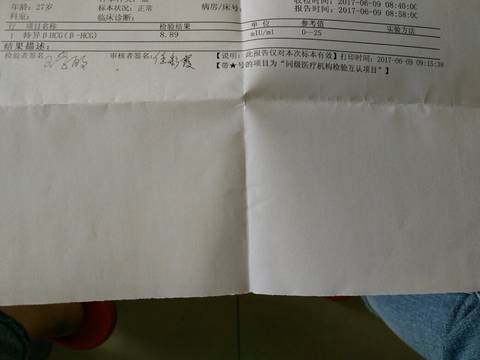 年龄: 27岁 标本状况: 正常 病房/床号: 2017-06-09 08:40:00
临床诊断: 报告时间: 2017-06-09 08:58:00
行 项目名称 检验结果 单 位 参考值 实验方法
1 特异β HCG(β-HCG) 8.89 mIU/ml 0--25
结果描述:
检验者签名: 审核者签名: 【说明: 此报告仅对本次标本有效】打印时间: 2017-06-09 09:15:38
【带★号的项目为“同级医疗机构检验互认项目”】